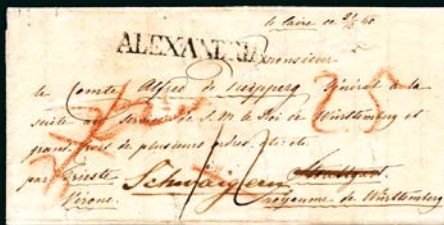 le Caire ce 21/5 40
ALEXANDRIA
Monsieur
le Comte Alfred de Neipperg Général à la
suite au service de S. M. le Roi de Württemberg et
grand croix de plusieurs ordres etc: etc
par Trieste Schwaigern Stuttgart
Vérone. royaume de Württemberg